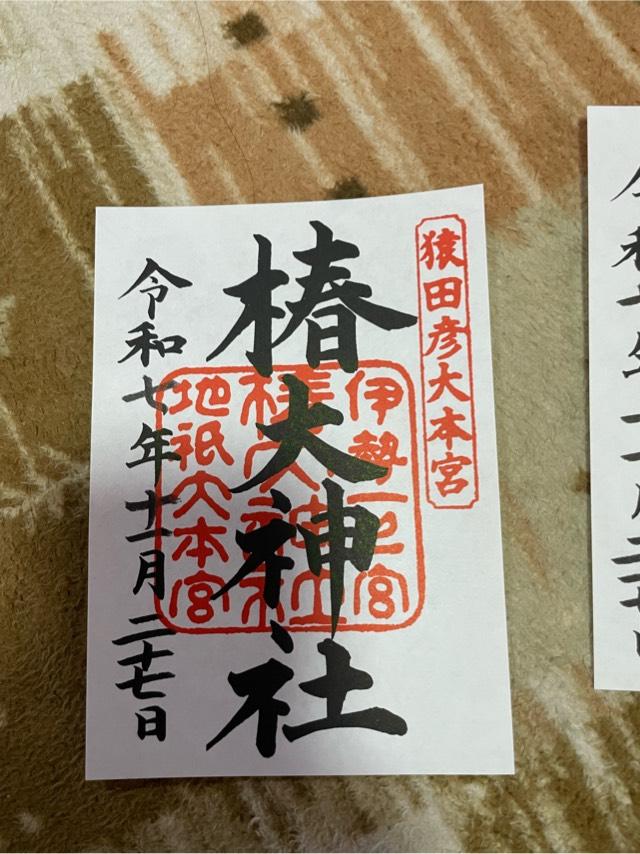 猿田彦大本宮
椿大神社
伊勢一之宮
椿大神社
地祇大本宮
令和七年十一月二十七日
令和七年十一月二十七日